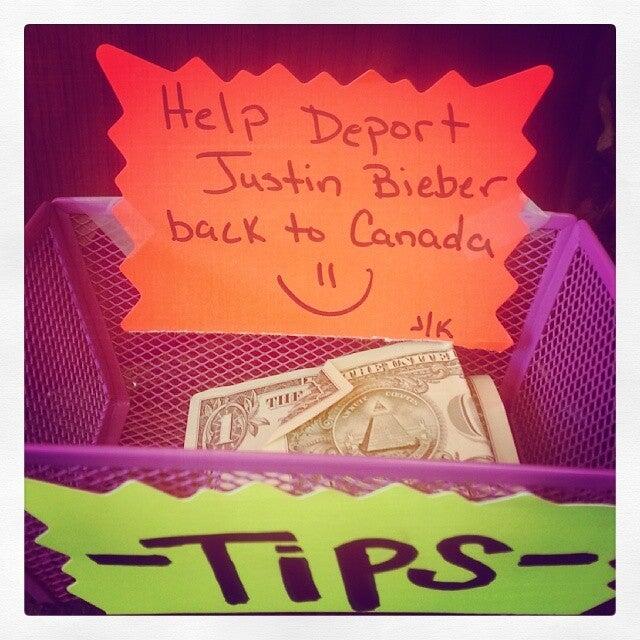 Help Deport
Justin Bieber
back to Canada
J/K
1
THE
-TiPS-